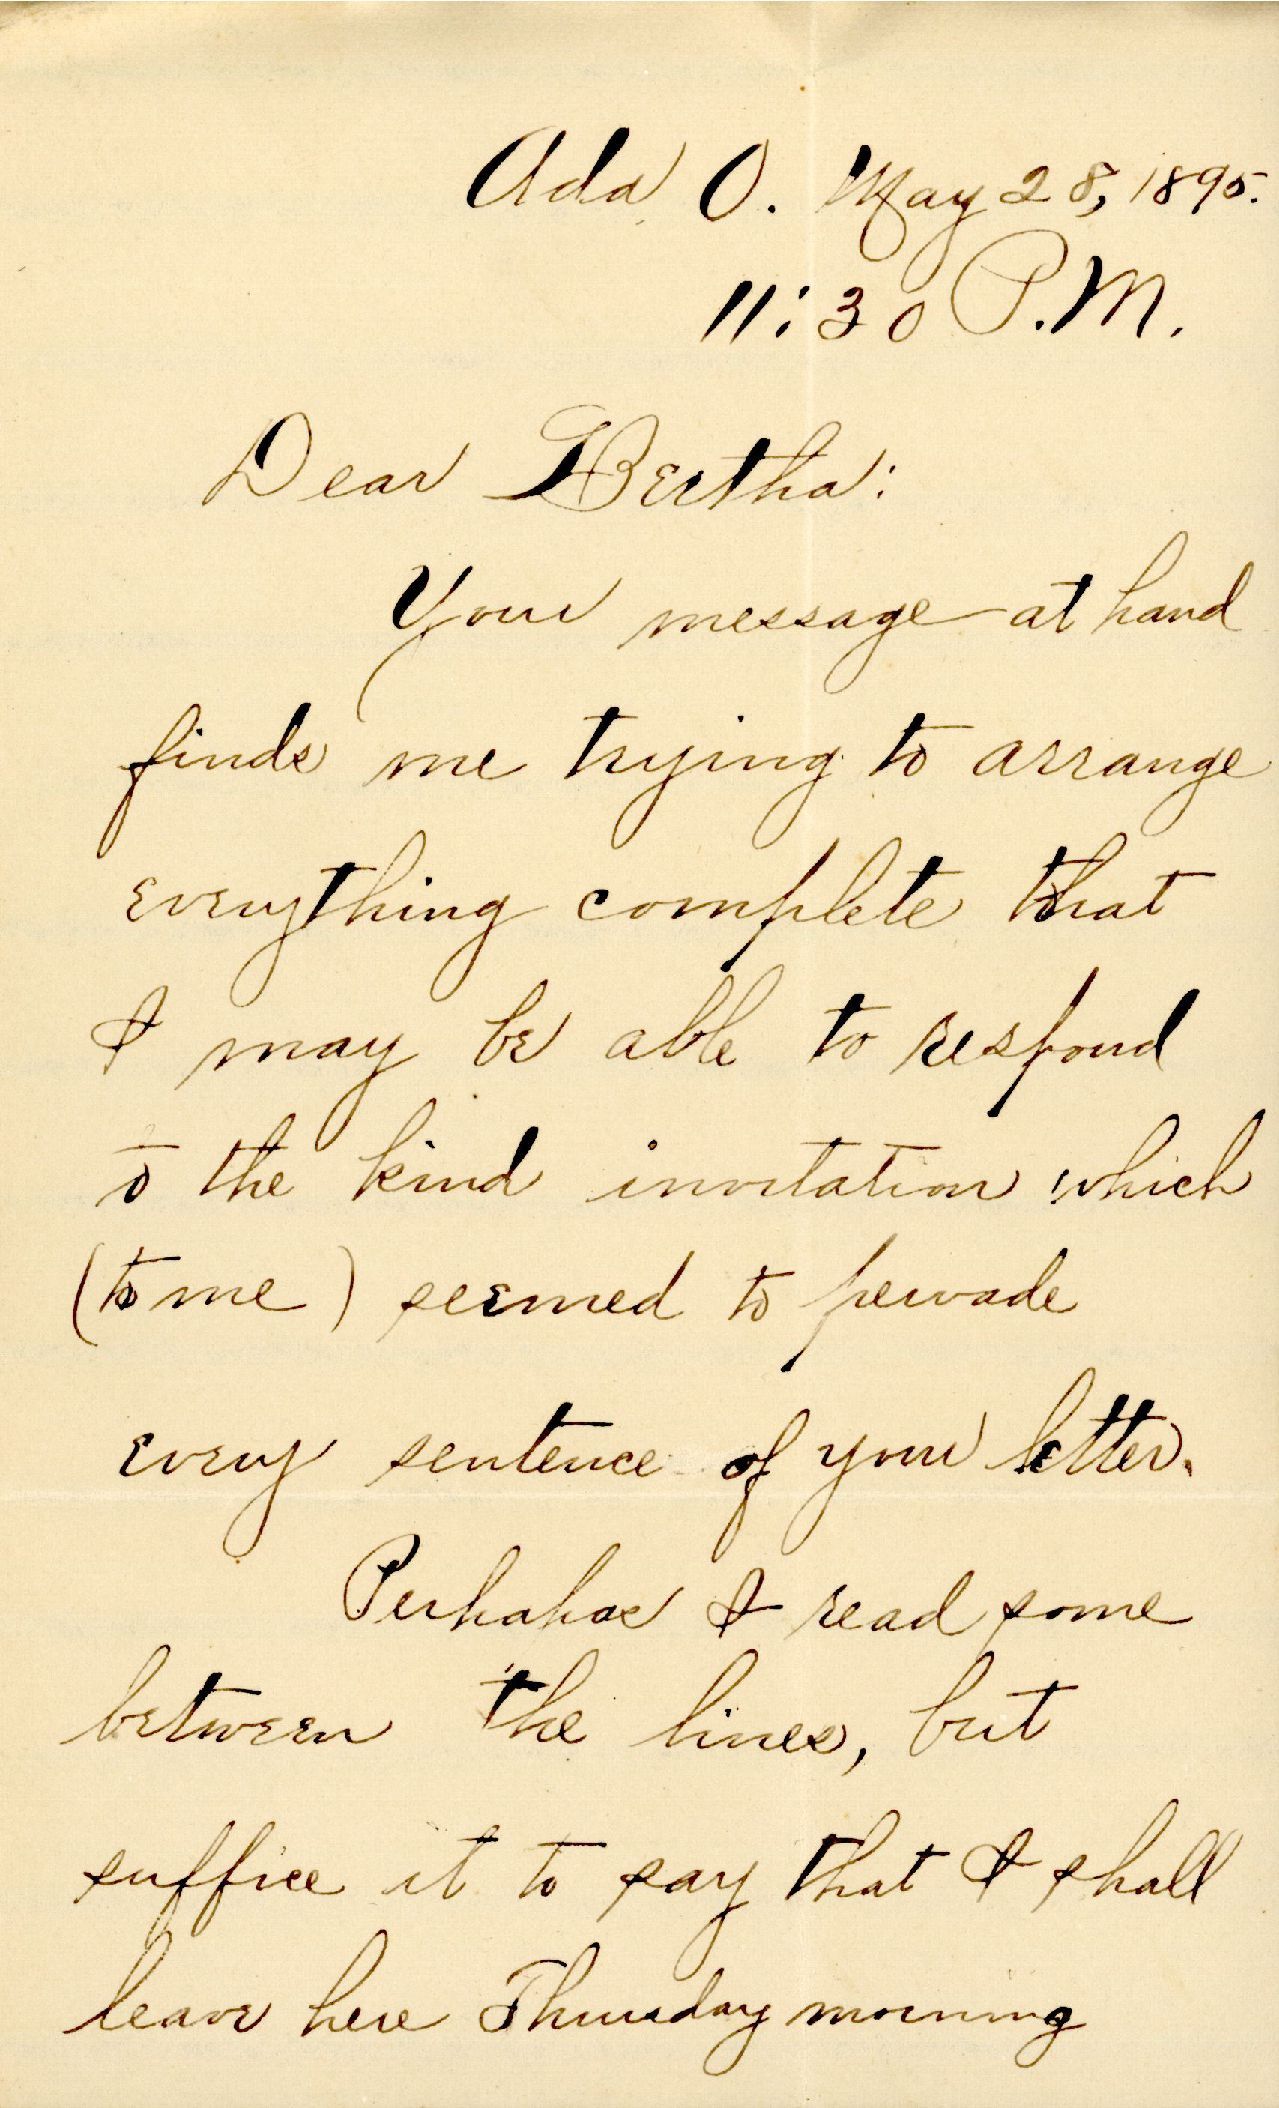 Ada O. May 28, 1895.
11:30 P.M.
Dear Bertha:
Your message at hand
finds me trying to arrange
everything complete that
I may be able to respond
to the kind invitation which
(to me) seemed to pervade
every sentence of your letter.
Perhahas I read some
between the lines, but
suffice it to say that I shall
leave here Thursday morning